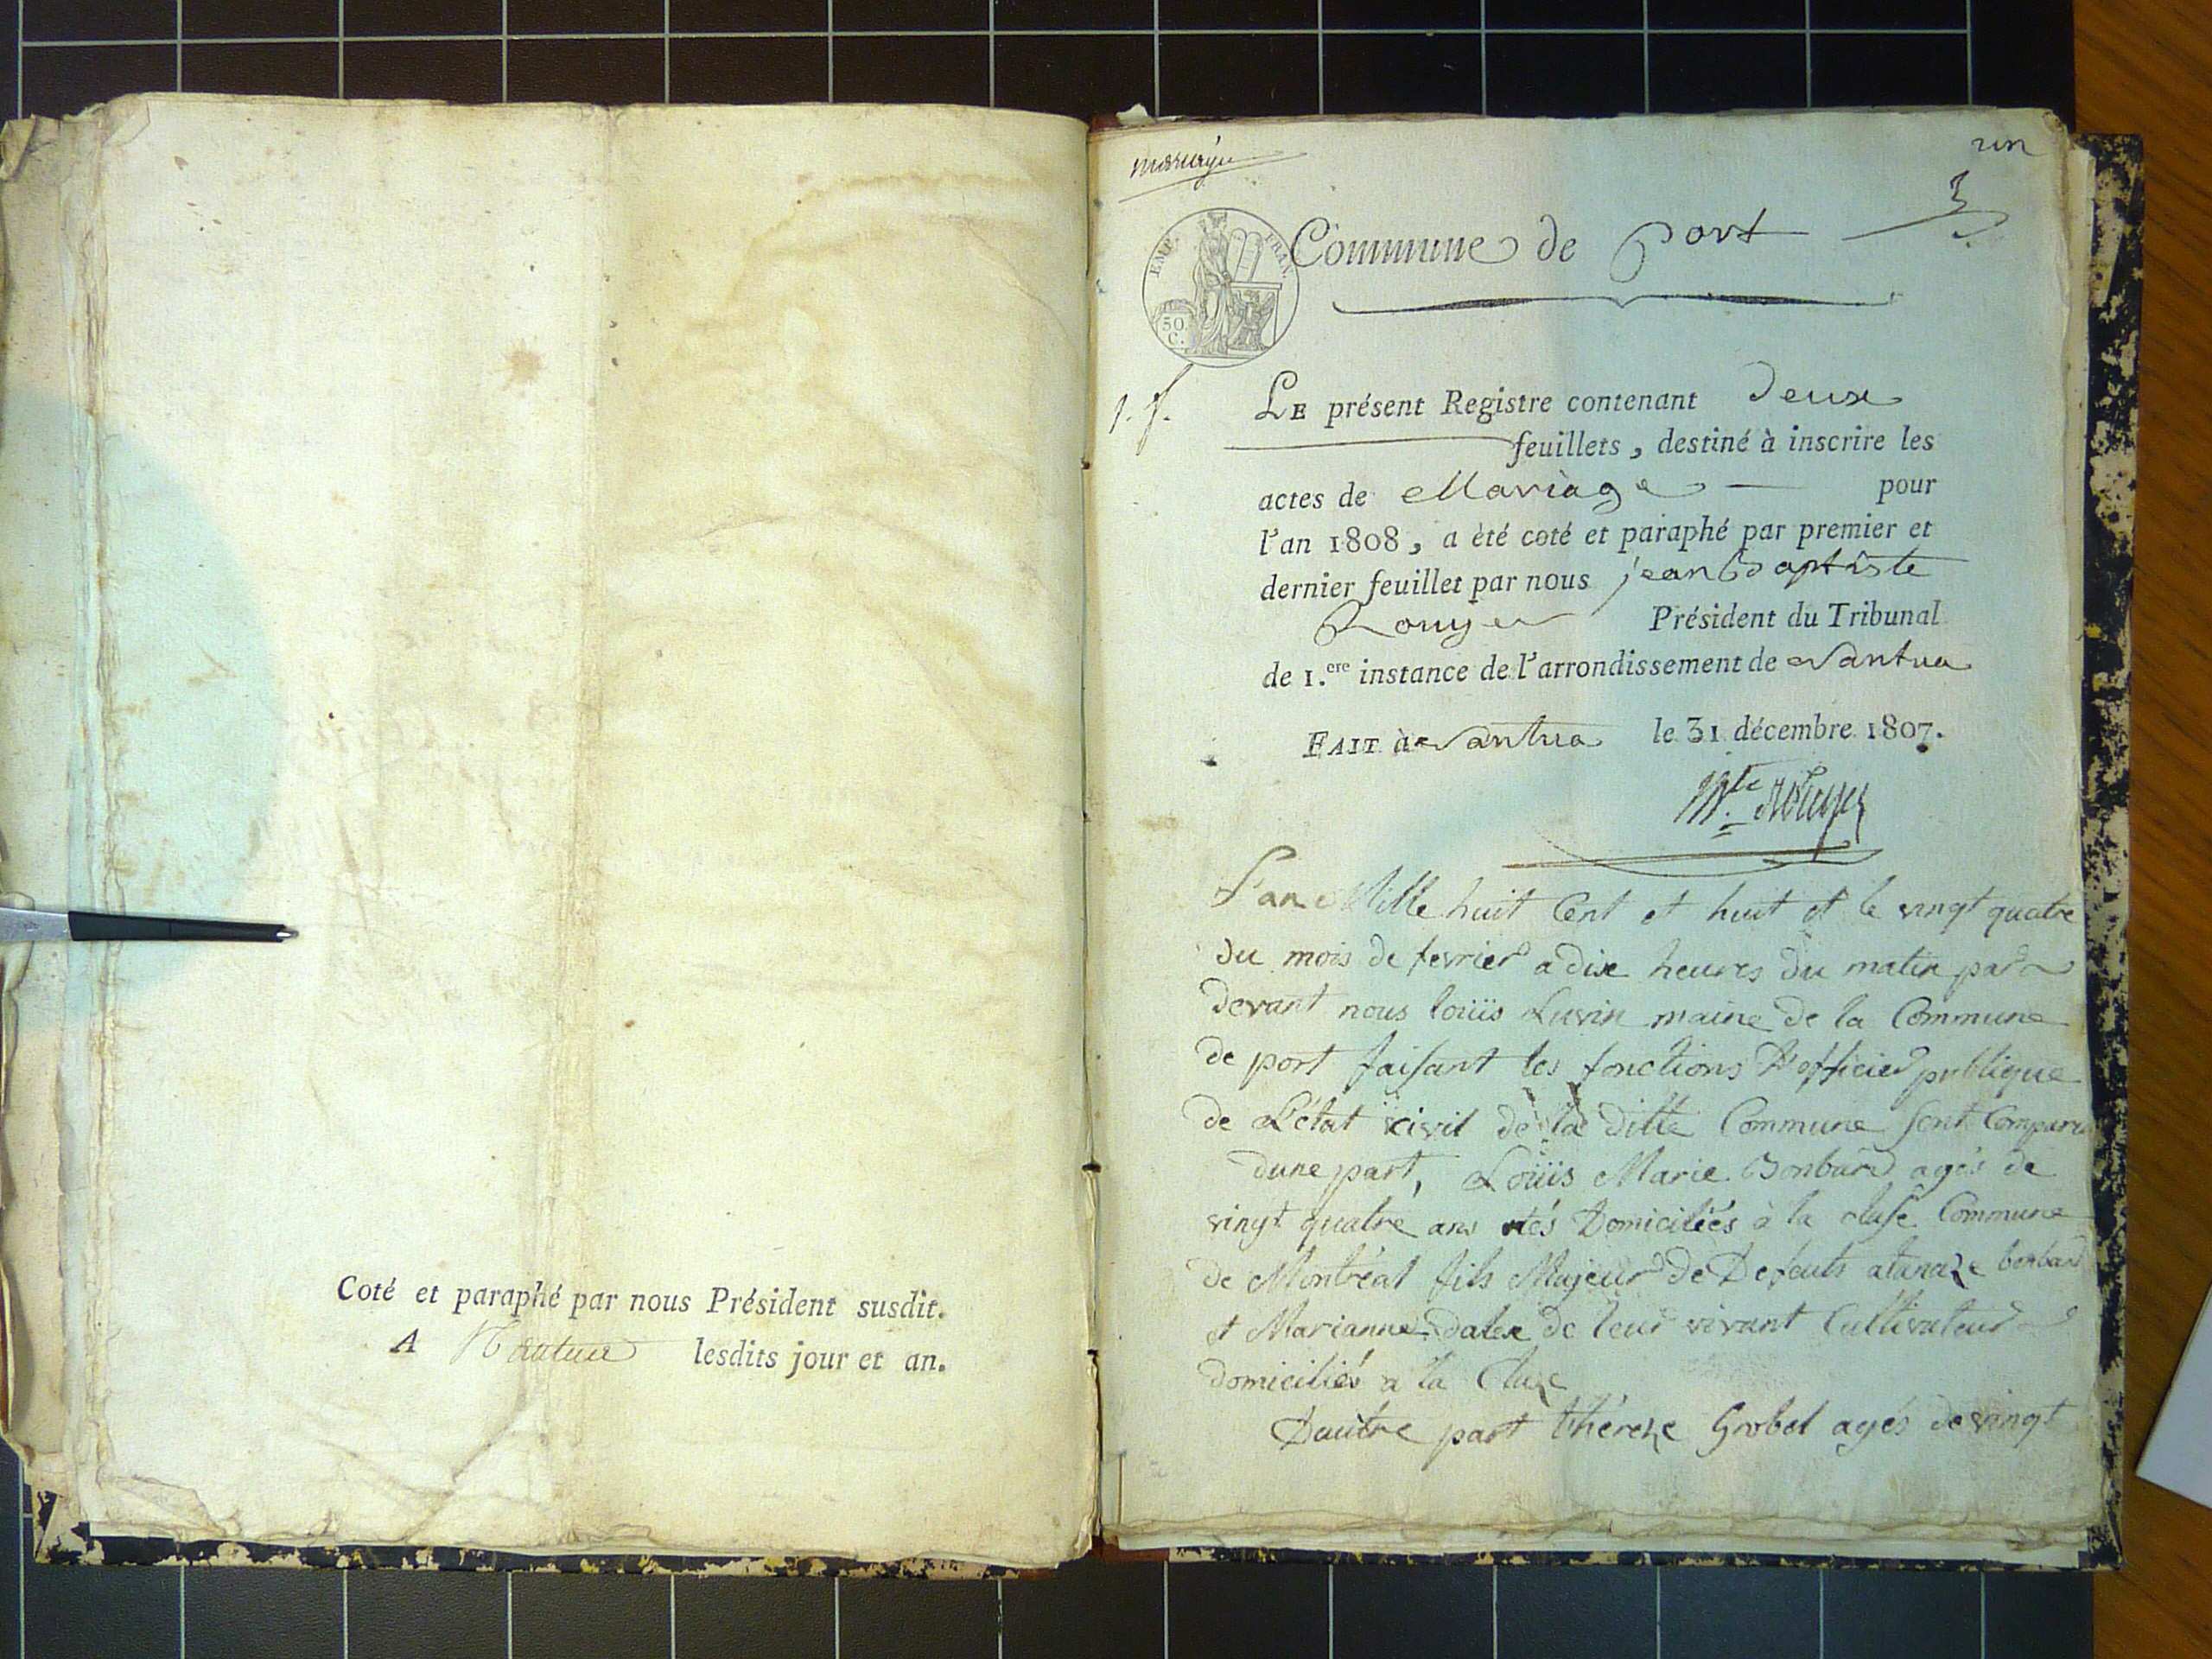 Coté et paraphé par nous Président susdit.
A Nantua lesdits jour et an.
mariage
un
EMP. FRAN.
50.
C.
Commune de Port
1. f.
LE présent Registre contenant Deux
feuillets, destiné à inscrire les
actes de Mariage pour
l'an 1808, a èté coté et paraphé par premier et
dernier feuillet par nous jean Baptiste
Rouyer Président du Tribunal
de 1.ere instance de l'arrondissement de Nantua
FAIT à Nantua le 31 décembre 1807.
Rouyer
L'an Mille huit Cent et huit et le vingt quatre
du mois de fevrier a dix heures du matin par
devant nous loüis Luvin maire de la Commune
de port faisant les fonctions D'officier publique
de L'état civil de la ditte Commune sont Comparu
dune part, Loüis Marie Bonbard agés de
vingt quatre ans Domiciliés à la cluse Commune
de Montréal fils Majeur de Defeuts atanaze bonbard
et Marianne dalex de leur vivant Cultivateur
domiciliés a la Cluze
Dautre part thérèze Grobel agés de vingt